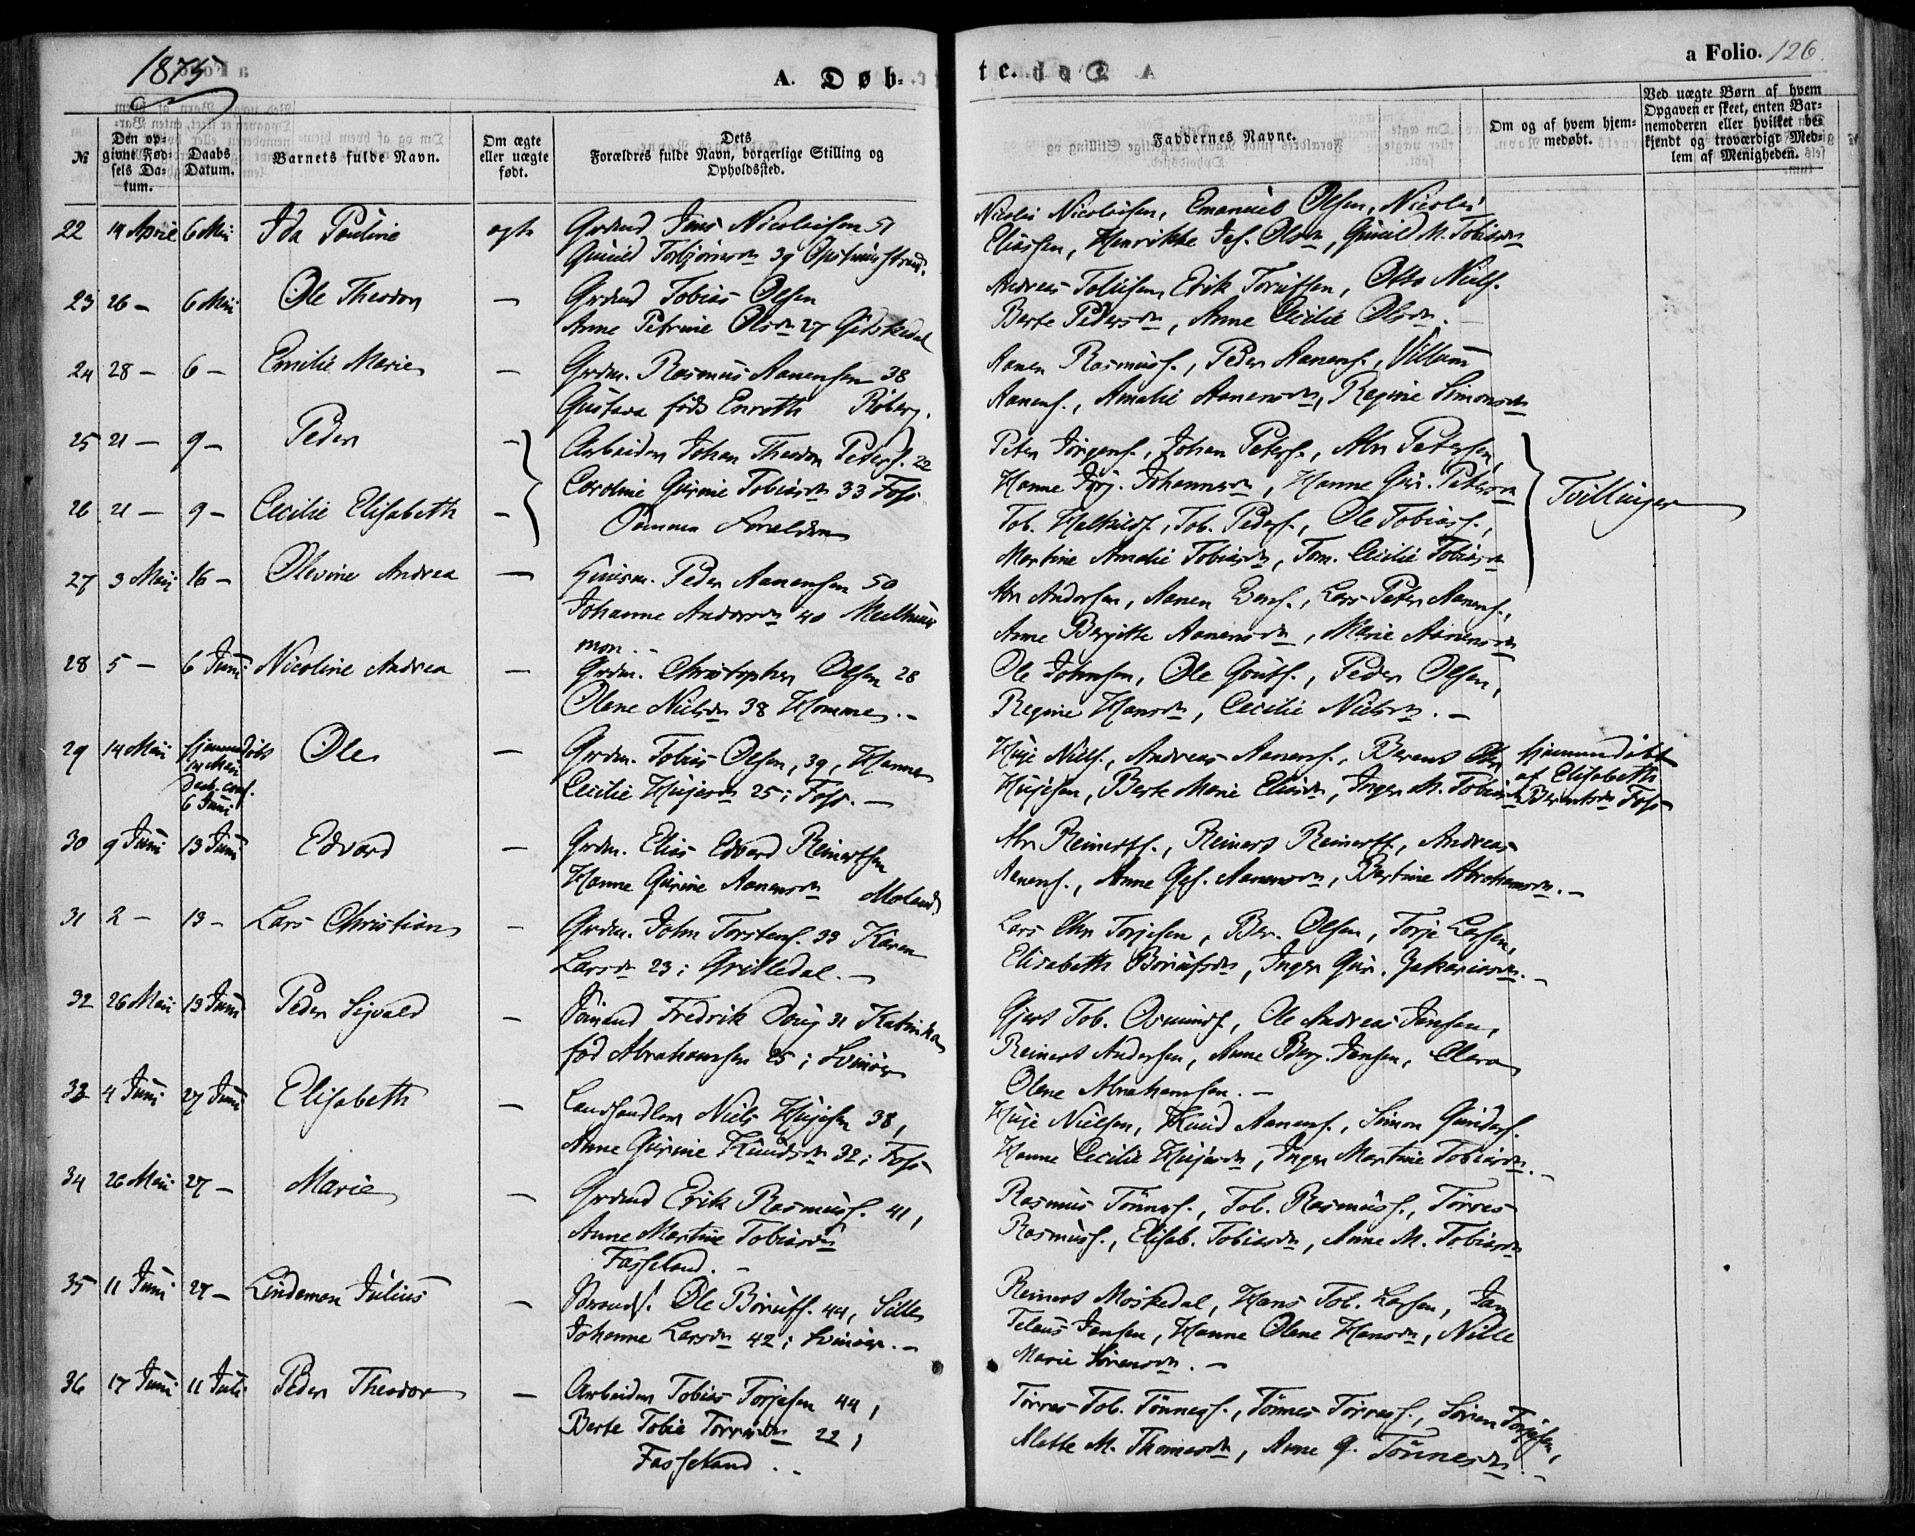 1875
A. Døb-
te.
a Folio. 126.
№
Den op-
givne Fød-
sels Da-
tum.
Daabs
Datum.
Barnets fulde Navn.
Om ægte
eller uægte
født.
Dets
Forældres fulde Navn, borgerlige Stilling og
Opholdssted.
Faddernes Navne.
Om og af hvem hjem-
medøbt.
Ved uægte Børn af hvem
Opgaven er skeet, enten Bar-
nemoderen eller hvilket be-
kjendt og troværdigt Med-
lem af Menigheden.
22 14 April 6 Mai Ida Pauline ægte Grdmd Jens Nicolaisen 51
Gunild Torbjørnsdn 39
Nicolai Nicolaisen, Emanuel Olsen, Nicolai
Eliassen, Henrikke Jos. Olsdn, Gunild M. Tobiasdn
23 26 — 6 Mai Ole Theodor — Grdmd Tobias Olsen
Anne Petrine Olsdn 27 Gidskedal
Andreas Tollisen, Erik Torkilsen, Otto Niels.
Berte Pedersdn, Anne Cecilie Olsdn. —
24 28 — 6 — Emilie Marie — Grdm. Rasmus Aanensen 38
Gustava født Enroth Roberg.
Aanen Rasmuss., Peder Aanens., Villum
Aanens., Amalie Aanensdn, Regine Simonsdn
25 21 — 9 — Peder — Arbeider Johan Theodor Peders. 22
Caroline Gurine Tobiasdn 33 Foss
Peter Jörgens., Johan Peters., Abr Petersen,
Hanne Jörg. Johannesdn, Hanne Gur. Petersdn
Tvillinger
26 21 — 9 — Cecilie Elisabeth — Samme Forældre
Tob. Peders., Ole Tobiass.,
Martine Amalie Tobiasdn, Tom. Cecilie Tobiasdn
27 3 Mai 16 — Olevine Andrea — Huusm. Peder Aanensen 50
Johanne Andersdn 40
mon. —
Abr Andersen, Aanen Evens., Lars Peter Aanens.,
Anne Bergitte Aanensdn, Marie Aanensdn
28 5 — 6 Juni Nicoline Andrea — Grdm. Christopher Olsen 28
Olene Nielsdn 38 Homme. —
Ole Johnsen, Ole Gouts., Peder Olsen,
Regine Hansdn, Cecilie Nielsdn. —
29 14 Mai hjemmedøbt
14 Mai
Daab. conf.
6 Juni
Ole — Grdm. Tobias Olsen, 39, Hanne
Cecilie Hujesdn 25 i Foss. —
Huje Niels., Andreas Aanens., Berent Chr.
Hujesen, Berte Marie Eliasdn, Inger M. Tobiasdn
hjemmedøbt
af Elisabeth
Berentsdn Foss
30 9 Juni 13 Juni Edvard — Grdm. Elias Edvard Reinertsen
Hanne Gurine Aanensdn Moland
Abr Reinerts., Reinert Reinerts., Andreas
Aanens., Anne Gef. Aanensdn, Bertine Abrahamsdn. —
31 2 — 13 — Lars Christian — Grdm. John Torstens. 33 Karen
Larsdn 23 i Grilledal. —
Lars Chr Torjesen, Ber. Olsen, Torje Larsen,
Elisabeth Boruffsdn, Inger Gur. Zakariasdn. —
32 26 Mai 13 Juni Peder Sigvald — Sömand Fredrik Doug 31 Katrika
fød Abrahamsen 25 i Svinør
Gjert Tob. Osmunds., Ole Andreas Jensen,
Reinert Andersen, Anne Berg. Jensen, Clara
Olene Abrahamsen. —
33 4 Juni 27 Juni Elisabeth — Landhandler Niels Hujesen 38,
Anne Gurine Knudsdn 32 i Foss
Huje Nielsen, Knud Aanens., Simon Gunders.
Hanne Cecilie Hujesdn, Inger Martine Tobiasdn. —
34 26 Mai 27 — Marie — Grdmd Erik Rasmuss. 41,
Anne Martine Tobiasdn
Fasseland. —
Rasmus Tönness., Tob. Rasmuss., Törres
Rasmuss., Elisab. Tobiasdn, Anne M. Tobiasdn
35 11 Juni 27 — Lindeman Julius — Ole Börufs. 44, Sille
Johanne Larsdn 42 i Svinør. —
Reinert Moskedal, Hans Tob. Larsen, Jan
Telaus Jensen, Hanne Olene Hansdn, Nille
Marie Sörensdn. —
36 17 Juni 11 Juli Peder Theodor — Arbeider Tobias Torjesen 44,
Berte Tobie Torresdn 22,
Fasseland. —
Törres Tob. Tönness., Tönnes Törress., Sören Torjesen,
Alette M. Thomasdn, Anne G. Tönnesdn. —